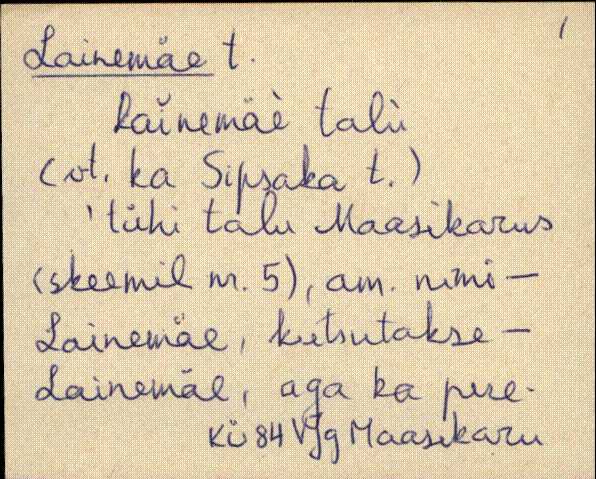 1
Lainemäe t.
Lai̬nemäè talù
(vt. ka Sipsaka t.)
'tühi talu Maasikarus
(skeemil nr. 5), am. nimi -
Lainemäe, kutsutakse -
Lainemäe, aga ka pere-
KÜ 84 VJg Maasikaru